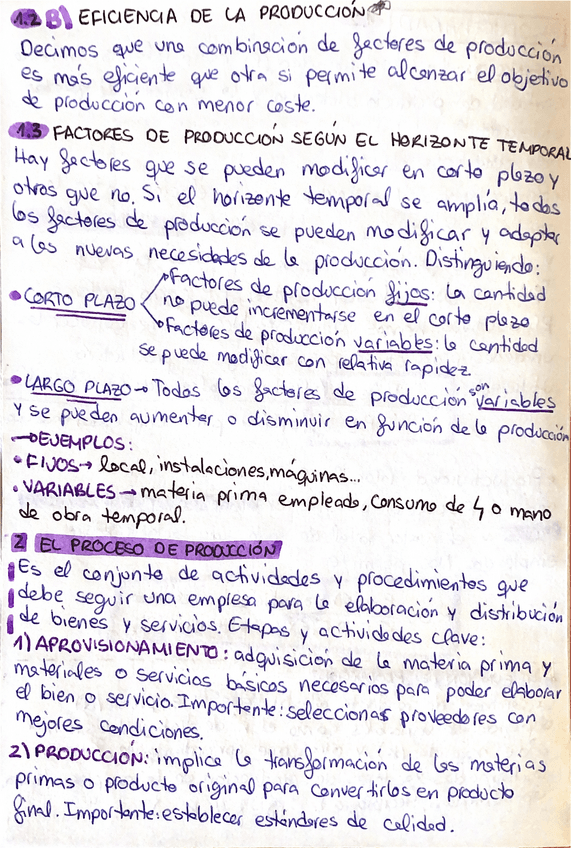 1.2 B) EFICIENCIA DE LA PRODUCCIÓN
Decimos que una combinación de factores de producción
es más eficiente que otra si permite alcanzar el objetivo
de producción con menor coste.
1.3 FACTORES DE PRODUCCIÓN SEGÚN EL HORIZONTE TEMPORAL
Hay factores que se pueden modificar en corto plazo y
otros que no. Si el horizonte temporal se amplía, todos
los factores de producción se pueden modificar y adaptar
a las nuevas necesidades de la producción. Distinguiendo:
• CORTO PLAZO
Factores de producción fijos: la cantidad
no puede incrementarse en el corto plazo
Factores de producción variables: la cantidad
se puede modificar con relativa rapidez.
• LARGO PLAZO → Todos los factores de producción son variables
y se pueden aumentar o disminuir en función de la producción
→ EJEMPLOS:
• FIJOS → local, instalaciones, máquinas...
• VARIABLES → materia prima empleada, consumo de 4 o mano
de obra temporal.
2 EL PROCESO DE PRODUCCIÓN
Es el conjunto de actividades y procedimientos que
debe seguir una empresa para la elaboración y distribución
de bienes y servicios. Etapas y actividades clave:
1) APROVISIONAMIENTO: adquisición de la materia prima y
materiales o servicios básicos necesarios para poder elaborar
el bien o servicio. Importante: seleccionar proveedores con
mejores condiciones.
2) PRODUCCIÓN: implica la transformación de las materias
primas o producto original para convertirlos en producto
final. Importante: establecer estándares de calidad.